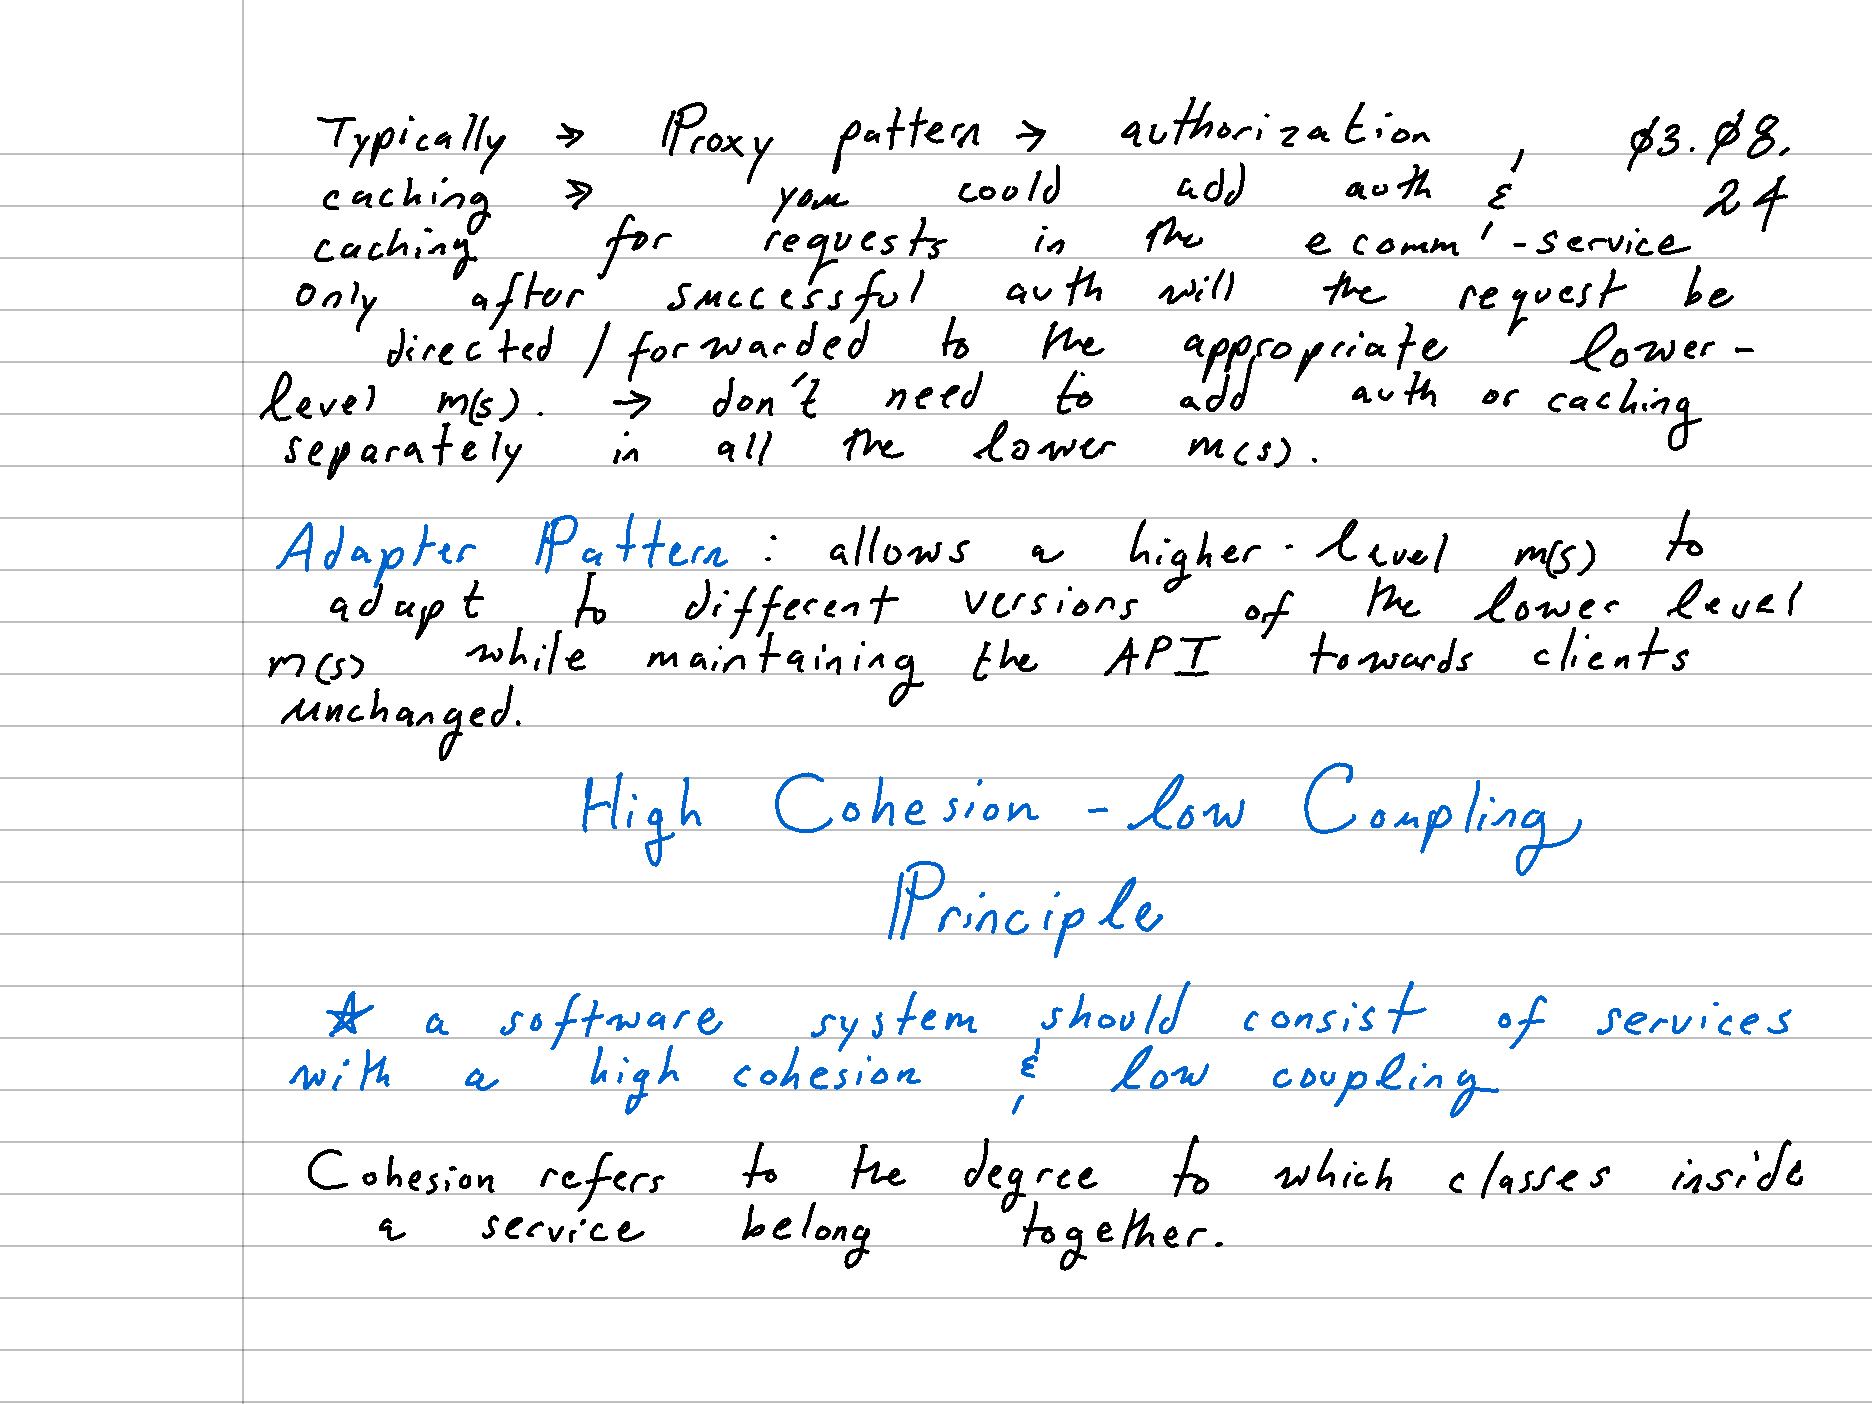 Typically → Proxy pattern → authorization, ø3.ø8.
caching → you could add auth & 24
caching for requests in the ecomm'-service
only after successful auth will the request be
directed / forwarded to the appropriate lower-
level m(s). → don't need to add auth or caching
separately in all the lower m(s).
Adapter Pattern : allows a higher-level m(s) to
adapt to different versions of the lower level
m(s) while maintaining the API towards clients
unchanged.
High Cohesion - low Coupling
Principle
☆ a software system should consist of services
with a high cohesion & low coupling
Cohesion refers to the degree to which classes inside
a service belong together.